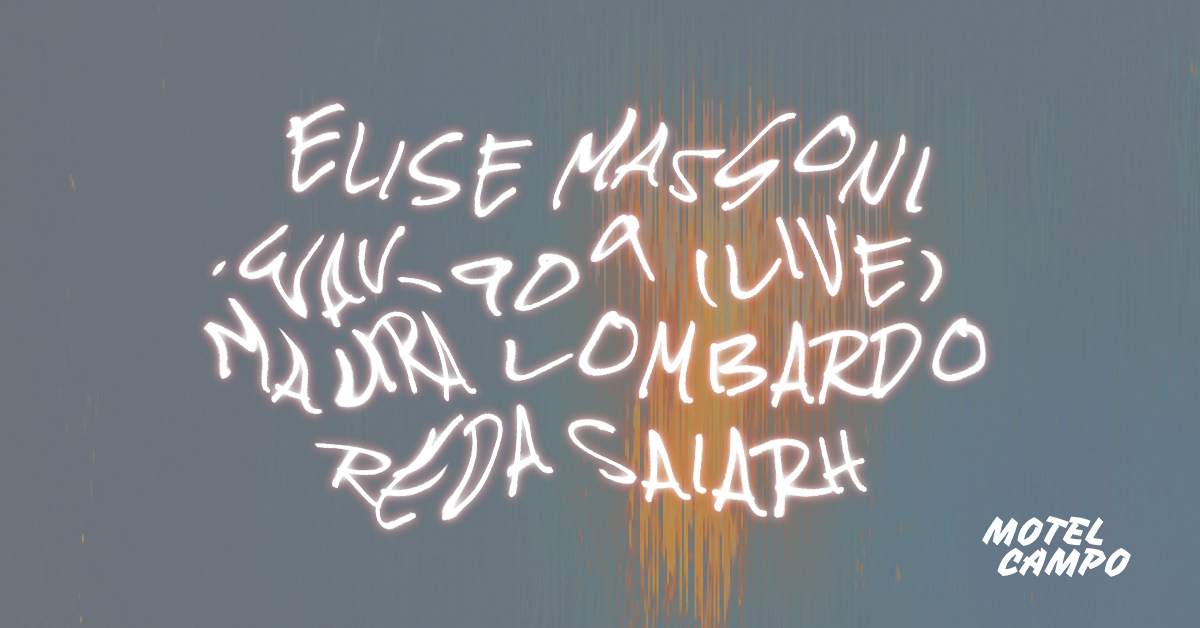 ELISE MASSONI
.WAV_909 (LIVE)
MAURA LOMBARDO
REDA SAIARH
MOTEL
CAMPO